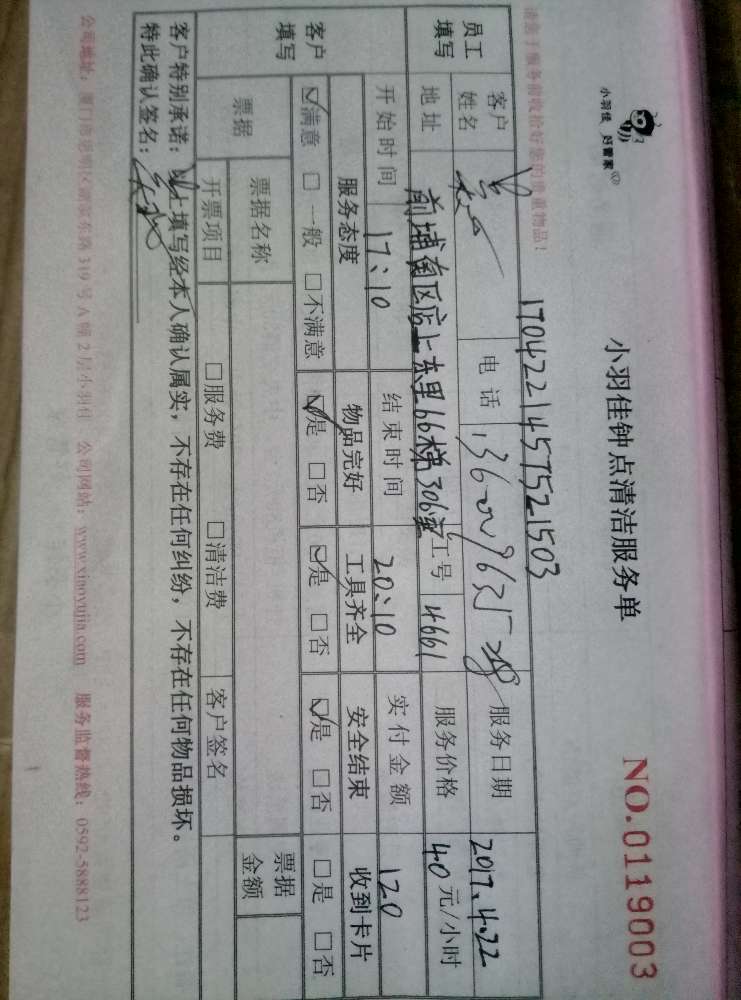 小羽佳 好管家
小羽佳钟点清洁服务单
NO.0119003
请客户服务前收拾好您的贵重物品！
1704221457521503
员工填写
客户姓名
电话
服务日期 2017.4.22
地址 前埔南区店上东里66梯306室
工号 4661
服务价格 40元/小时
开始时间 17:10
结束时间 20:10
实付金额 120
客户填写
服务态度 物品完好 工具齐全 安全结束 收到卡片
☑满意 □一般 □不满意 ☑是 □否 ☑是 □否 ☑是 □否 □是 □否
票据
票据名称
票据金额
开票项目 □服务费 □清洁费 客户签名
客户特别承诺：以上填写经本人确认属实，不存在任何纠纷，不存在任何物品损坏。
特此确认签名：
公司地址：厦门市思明区 319号A幢2层小羽佳 公司网站：www.xiaoyujia.com 服务监督热线：0592-5888123